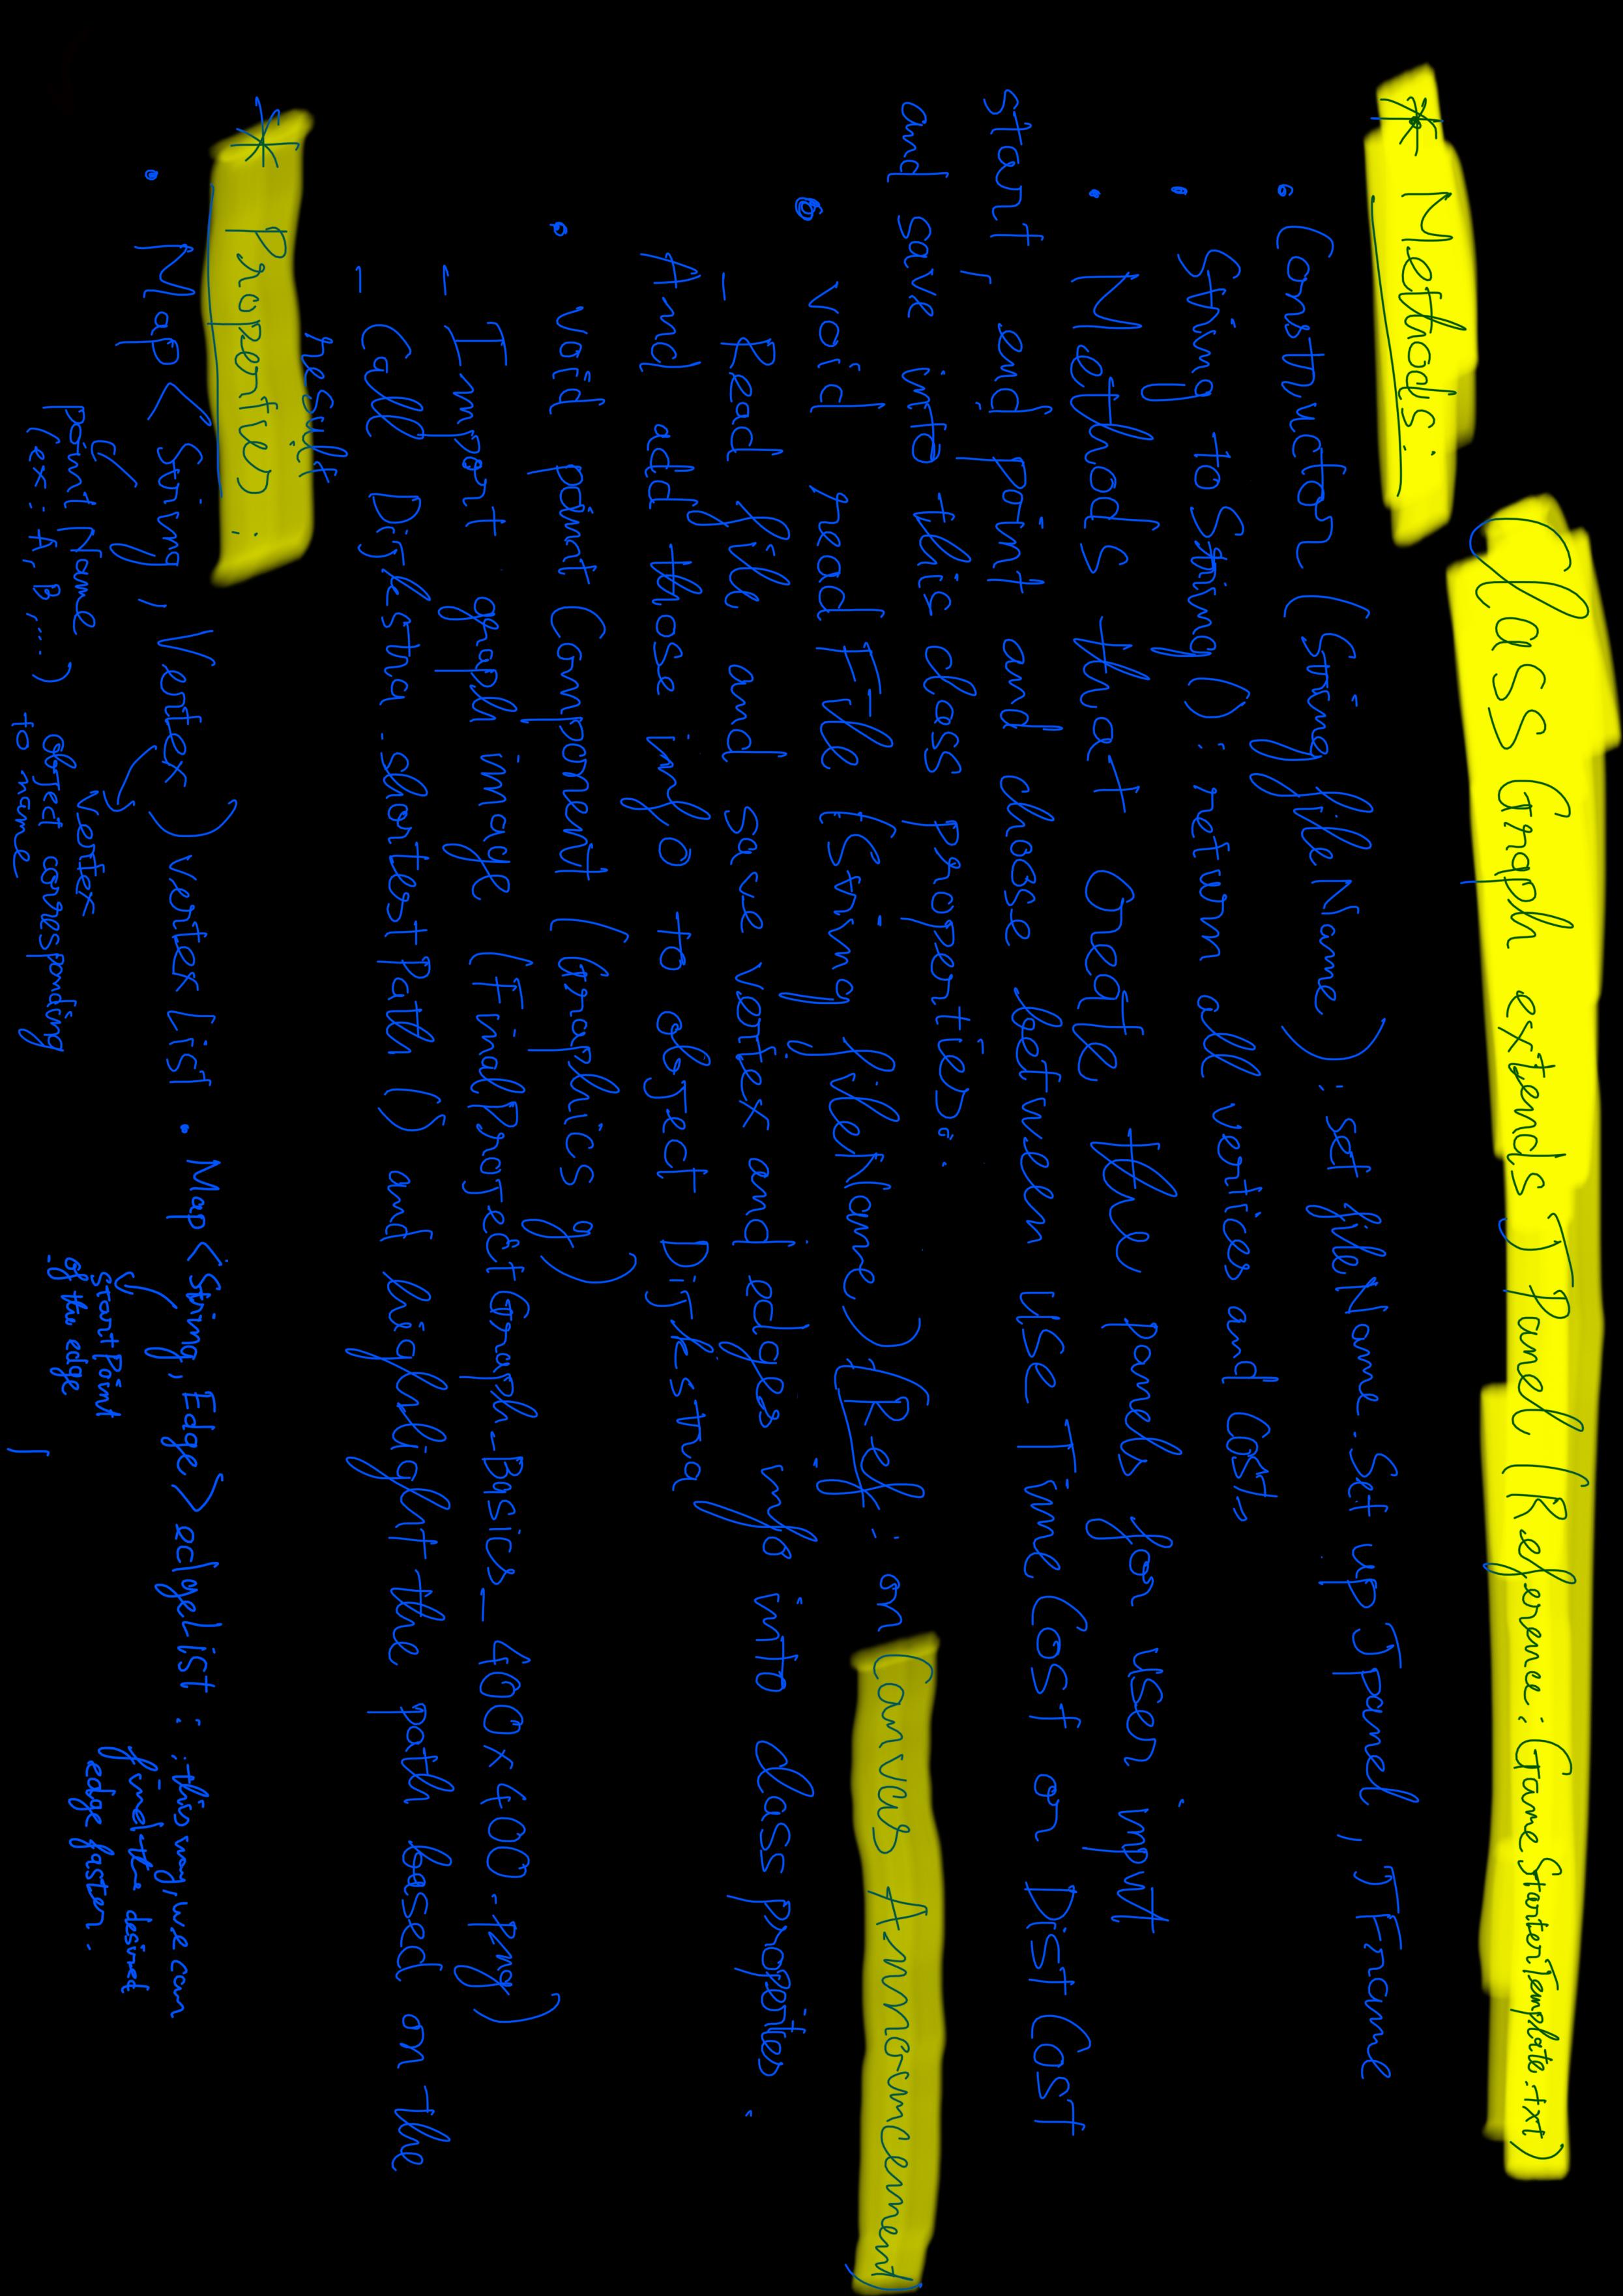 Class Graph extends JPanel (Reference: GameStarterTemplate.txt)
* Methods:
• Constructor (String fileName): set fileName. Set up Jpanel, JFrame
• String toString(): return all vertices and costs
• Methods that create the panels for user input
start, end point and choose between use TimeCost or DistCost
and save into this class properties.
• void readFile (String fileName) (Ref: on Canvas Announcement)
- Read file and save vertex and edges info into class properties.
And add those info to object Dijkstra
• void paintComponent (Graphics g)
- Import graph image (FinalProjectGraph_Basics_400x400.png)
- Call Dijkstra.shortestPath() and highlight the path based on the
result
* Properties:
• Map<String, Vertex) vertexList • Map<String, Edge> edgeList : : this way, we can
find the desired
edge faster.
point Name
(ex: A, B, ...)
Vertex
object corresponding
to name
startPoint
of the edge